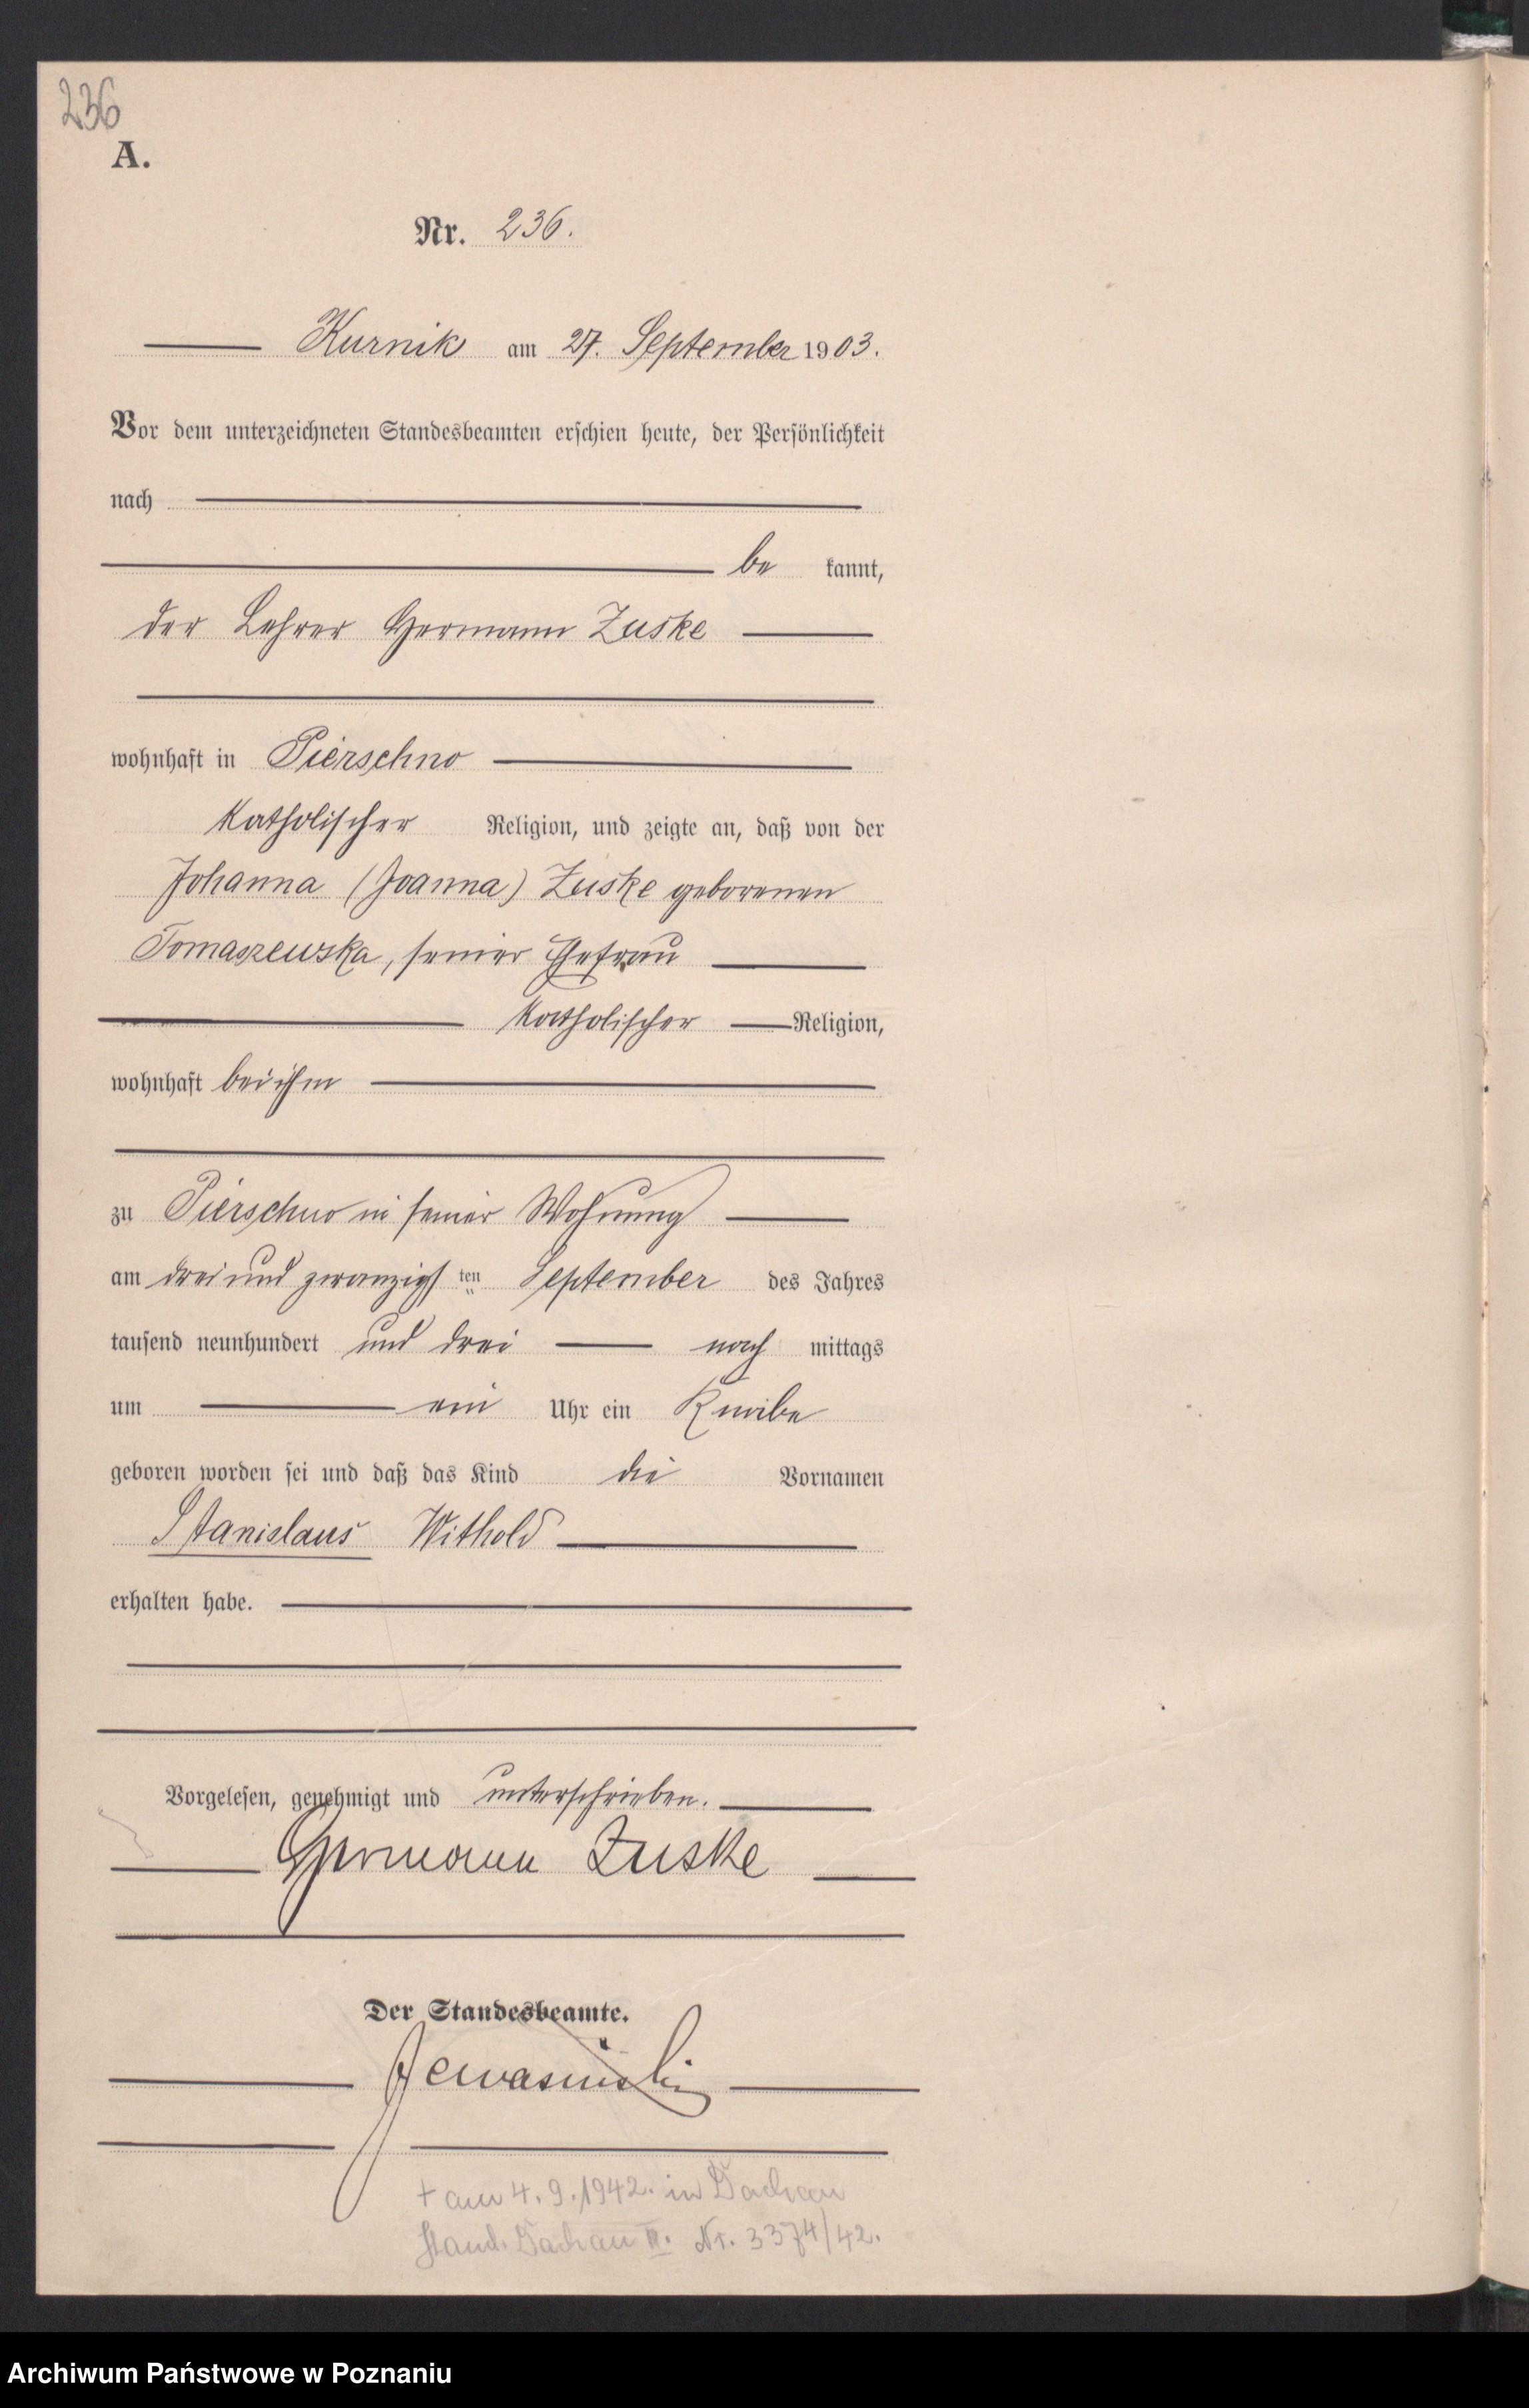 236
A.
Nr. 236.
Kurnik am 27. September 1903.
Vor dem unterzeichneten Standesbeamten erschien heute, der Persönlichkeit
nach
be kannt,
der Lehrer Hermann Zuske
wohnhaft in Pierschno
katholischer Religion, und zeigte an, daß von der
Johanna (Joanna) Zuske geborenen
Tomaszewska, seiner Ehefrau
katholischer Religion,
wohnhaft bei ihm
zu Pierschno in seiner Wohnung
am drei und zwanzigsten September des Jahres
tausend neunhundert und drei nach mittags
um ein Uhr ein Knabe
geboren worden sei und daß das Kind die Vornamen
Stanislaus Withold
erhalten habe.
Vorgelesen, genehmigt und unterschrieben.
Hermann Zuske
Der Standesbeamte.
+ am 4.9.1942. in Dachau
Stand. Dachau II. Nr. 3374/42.
Archiwum Państwowe w Poznaniu